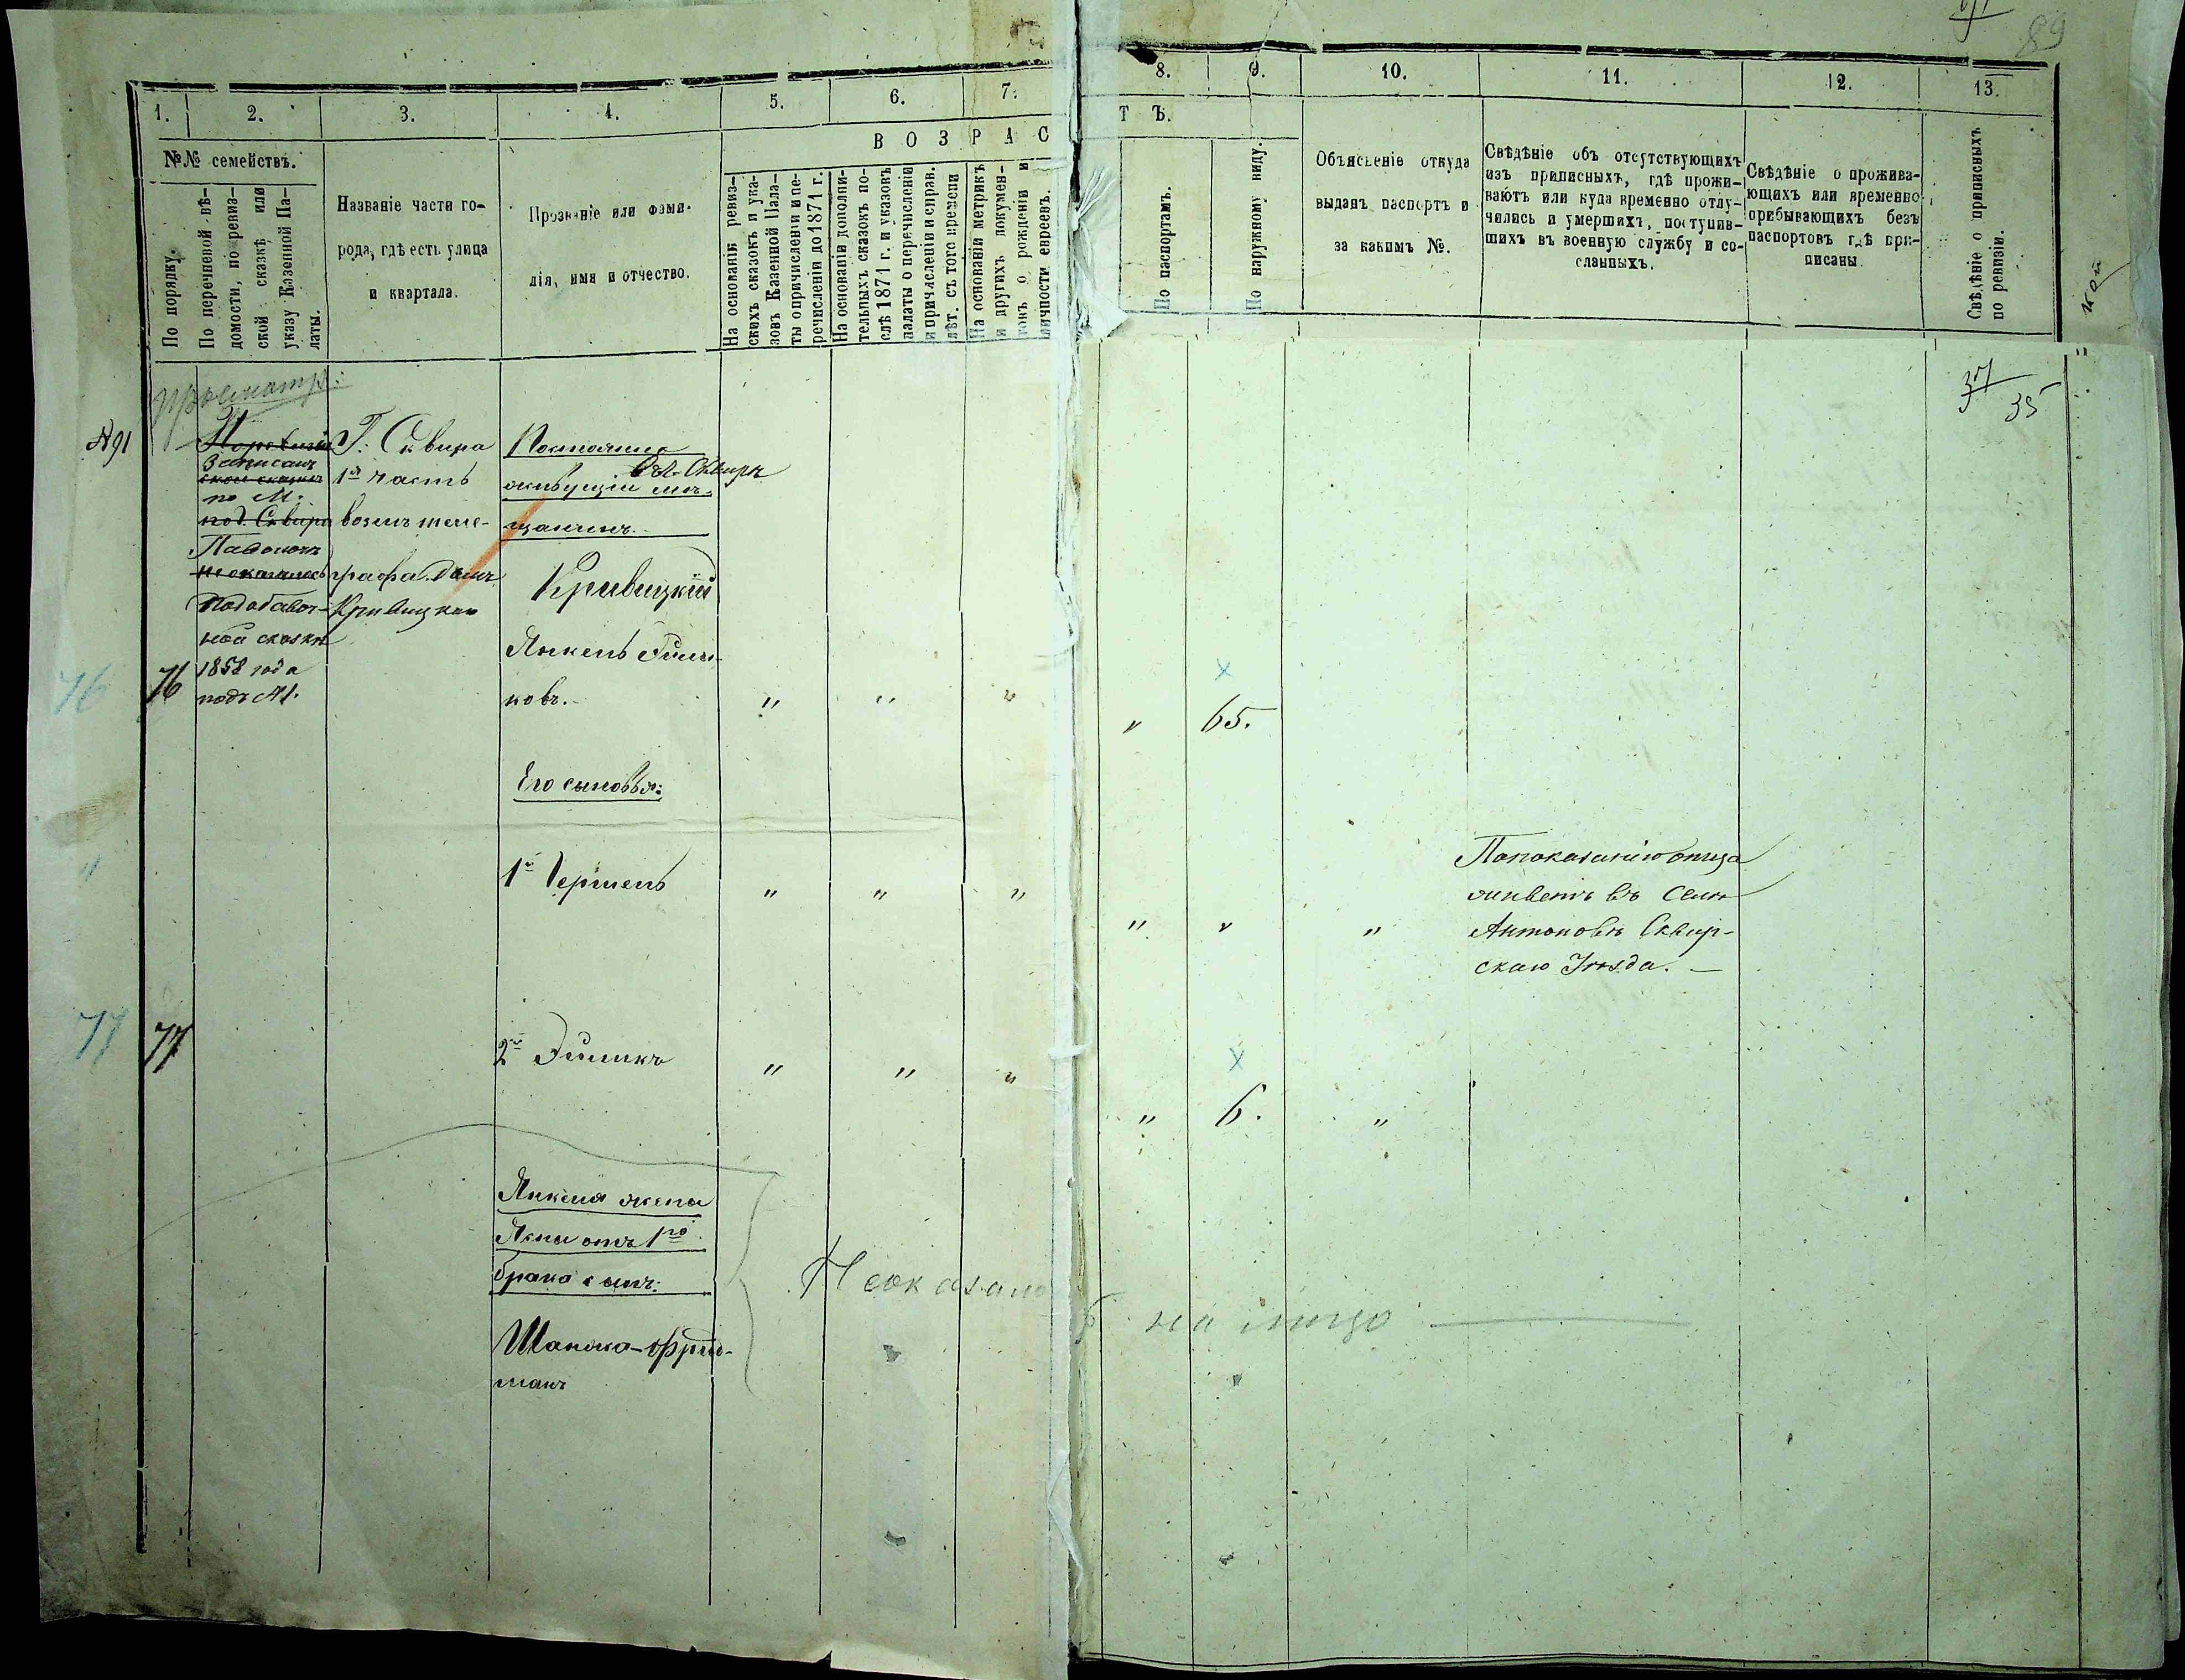 89
1. 2. 3. 4. 5. 6. 7. 8. 9. 10. 11. 12. 13.
ВОЗРАСТЪ.
№№ семействъ.
По порядку.
По перечневой вѣ-
домости, по ревиз-
ской сказкѣ или
указу Казенной Па-
латы.
Названіе части го-
рода, гдѣ есть улица
и квартала.
Прозваніе или фами-
лія, имя и отчество.
На основаніи ревиз-
скихъ сказокъ и ука-
зовъ Казенной Пала-
ты о причисленіи и пе-
речисленіи до 1871 г.
На основаніи дополни-
тельныхъ сказокъ по-
слѣ 1871 г. и указовъ
палаты о перечисленіи
и причисленіи и справ.
лѣт. съ того времени
На основаніи метрикъ
и другихъ докумен-
товъ о рожденіи и
личности евреевъ.
По паспортамъ.
По наружному виду.
Объясненіе откуда
выданъ паспортъ и
за какимъ №.
Свѣдѣніе объ отсутствующихъ
изъ приписныхъ, гдѣ прожи-
ваютъ или куда временно отлу-
чились и умершихъ, поступив-
шихъ въ военную службу и со-
сланныхъ.
Свѣдѣніе о прожива-
ющихъ или временно
прибывающихъ безъ
паспортовъ гдѣ при-
писаны.
Свѣдѣніе о приписныхъ
по ревизіи.
35
№91
Записанъ
по М.
под. Сквира
не оказалось
По добавоч-
ной сказкѣ
1858 года
подъ №1.
Г. Сквира
1я часть
возлѣ теле-
графа. домъ
Кривицкаго
Постоянно
въ г. Сквирѣ
живущій мѣ-
щанинъ.
Кривицкій
Янкель Эйли-
ковъ.
76 76 " " " " 65.
Его сыновья:
1й Гершель " " " " " "
По показанію отца
живетъ въ Селѣ
Антоновкѣ Сквир-
скаго Уѣзда. —
77 77
2й Эйликъ " " " " 6. "
Янкеля жены
отъ 1го
брака сынъ:
Неоказалось на лицо